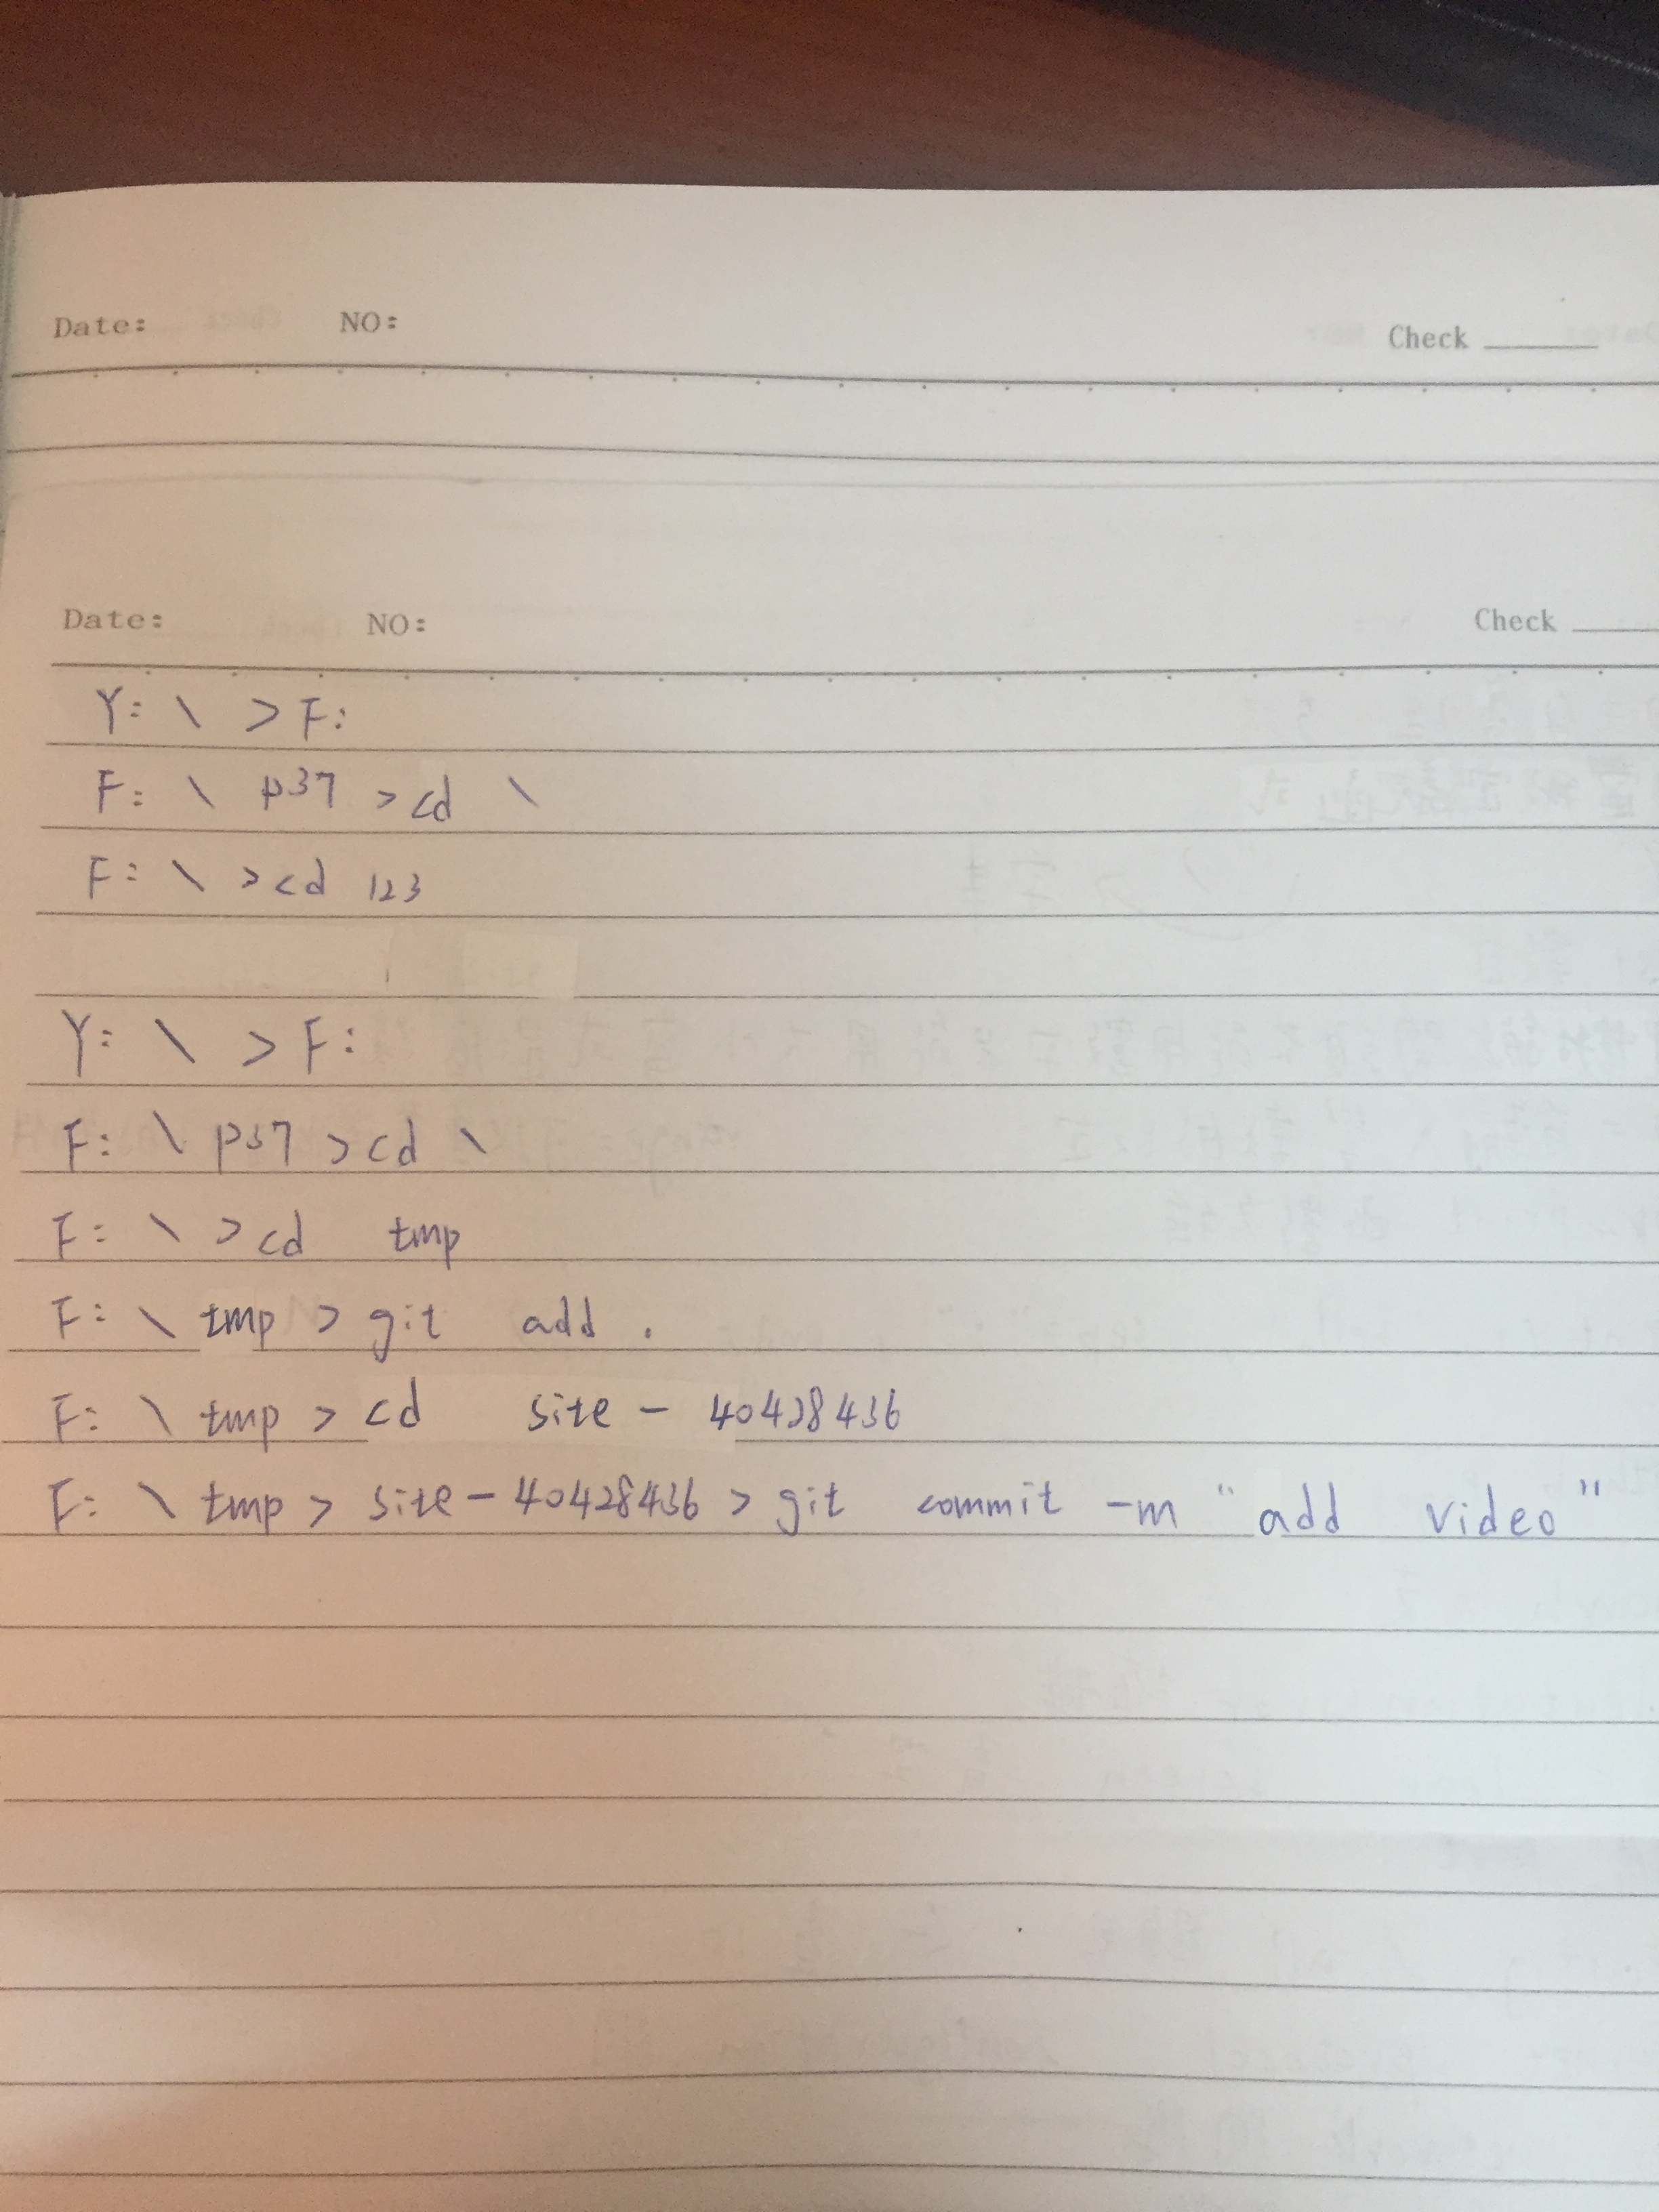 Date: NO: Check
Date: NO: Check
Y: \ > F:
F: \ p37 > cd \
F: \ > cd 123
Y: \ > F:
F: \ p37 > cd \
F: \ > cd tmp
F: \ tmp > git add .
F: \ tmp > cd site - 40428436
F: \ tmp > site - 40428436 > git commit -m "add video"